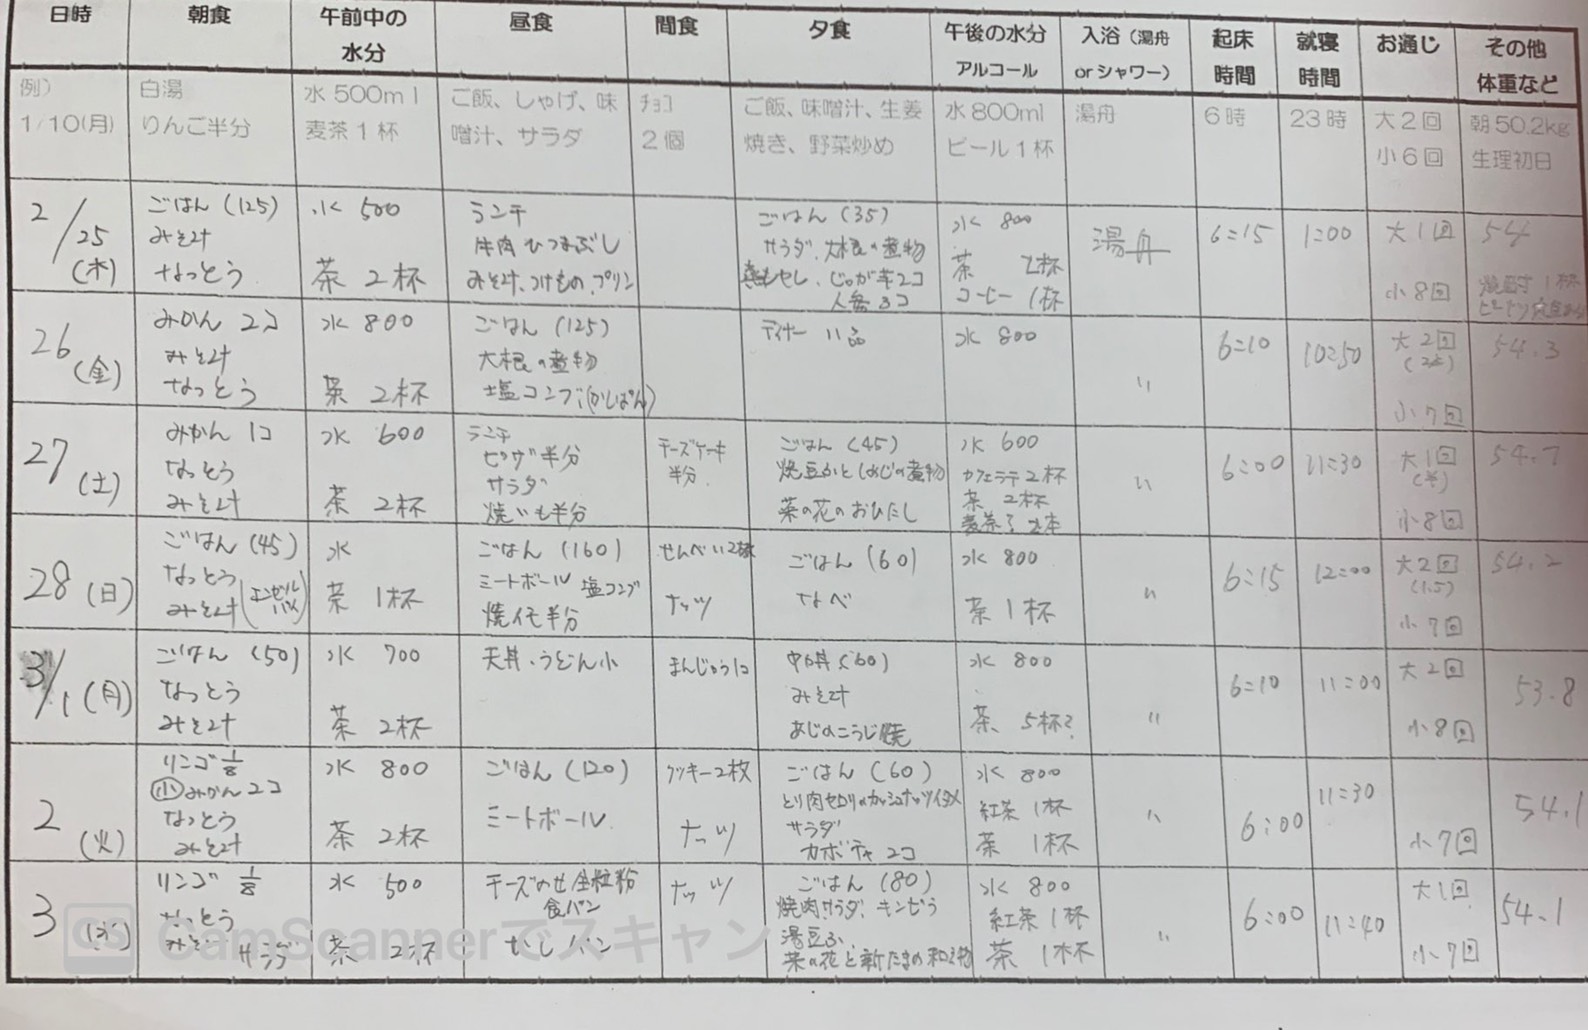 日時 朝食 午前中の水分 昼食 間食 夕食 午後の水分アルコール 入浴（湯舟orシャワー） 起床時間 就寝時間 お通じ その他体重など
例）
1/10(月)
白湯
りんご半分
水500ml
麦茶1杯
ご飯、しゃけ、味
噌汁、サラダ
ﾁｮｺ
2個
ご飯、味噌汁、生姜
焼き、野菜炒め
水800ml
ビール1杯
湯舟
6時
23時
大2回
小6回
朝50.2kg
生理初日
2/25
(木)
ごはん (125)
みそ汁
なっとう
水 500
茶 2杯
ランチ
牛肉ひつまぶし
みそ汁、つけもの、プリン
ごはん (35)
サラダ、大根の煮物
蒸しモヤシ、じゃが芋2コ
人参3コ
水 800
茶 2杯
コーヒー 1杯
湯舟
6:15
1:00
大1回
小8回
54
焼酎1杯
26
(金)
みかん 2コ
みそ汁
なっとう
水 800
茶 2杯
ごはん (125)
大根の煮物
塩コンブ、(かしぱん)
ディナー 11品
水 800
〃
6:10
10:50
大2回
小7回
54.3
27
(土)
みかん 1コ
なっとう
みそ汁
水 600
茶 2杯
ランチ
ピザ半分
サラダ
焼いも半分
チーズケーキ
半分
ごはん (45)
焼豆ふとしめじの煮物
菜の花のおひたし
水 600
カフェラテ2杯
茶 2杯
〃
6:00
11:30
大1回
(半)
小8回
54.7
28
(日)
ごはん (45)
なっとう
みそ汁
水
茶 1杯
ごはん (160)
ミートボール 塩コンブ
焼イモ半分
せんべい2枚
ナッツ
ごはん (60)
なべ
水 800
茶 1杯
〃
6:15
12:00
大2回
(1.5)
小7回
54.2
3/1
(月)
ごはん (50)
なっとう
みそ汁
水 700
茶 2杯
天丼、うどん小
まんじゅう1コ
中華丼(60)
みそ汁
あじのこうじ焼
水 800
茶、5杯?
〃
6:10
11:00
大2回
小8回
53.8
2
(火)
リンゴ 1/8
㊙みかん2コ
なっとう
みそ汁
水 800
茶 2杯
ごはん (120)
ミートボール
クッキー2枚
ナッツ
ごはん (60)
とり肉セロリのカシュナッツイタメ
サラダ
カボチャ 2コ
水 800
紅茶 1杯
茶 1杯
〃
6:00
11:30
小7回
54.1
3
(水)
リンゴ 1/8
なっとう
みそ汁 サラダ
水 500
茶 2杯
チーズのせ全粒粉
食パン
むしパン
ナッツ
ごはん (80)
焼肉、サラダ、キンピラ
湯豆ふ、
菜の花と新たまの和え物
水 800
紅茶 1杯
茶 1杯
〃
6:00
11:40
大1回
小7回
54.1
CS CamScannerでスキャン